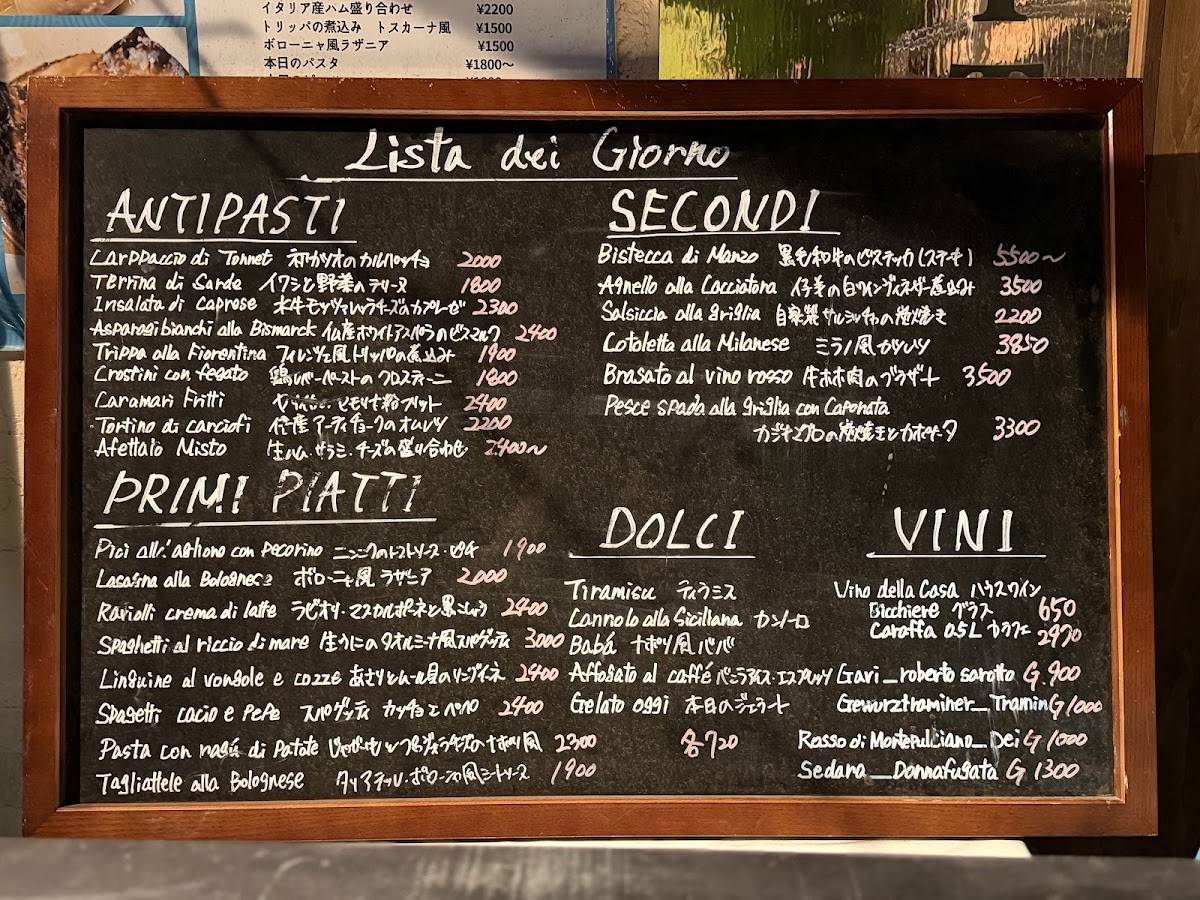 イタリア産ハム盛り合わせ ¥2200
トリッパの煮込み トスカーナ風 ¥1500
ボローニャ風ラザニア ¥1500
本日のパスタ ¥1800〜
Lista dei Giorno
ANTIPASTI
Carppaccio di Tonnet 初カツオのカルパッチョ 2000
Terrina di Sarde イワシと野菜のテリーヌ 1800
Insalata di caprese 水牛モッツァレラチーズのカプレーゼ 2300
Asparagi bianchi alla Bismarck 仏産ホワイトアスパラのビスマルク 2400
Trippa alla Fiorentina フィレンツェ風トリッパの煮込み 1900
Crostini con fegato 鶏レバーペーストのクロスティーニ 1800
Caramari Fritti フリット 2400
Tortino di carciofi 産アーティチョークのオムレツ 2200
Afettato Misto 生ハム・サラミ・チーズの盛り合わせ 2400〜
PRIMI PIATTI
Pici all'aglione con pecorino ニンニクのトマトソース・ピチ 1900
Lasagna alla Bolognese ボローニャ風ラザニア 2000
Raviolli crema di latte ラビオリ・マスカルポーネと黒こしょう 2400
Spaghetti al riccio di mare 生うにのタオルミーナ風スパゲッティ 3000
Linguine al vongole e cozze あさりとムール貝のリングイネ 2400
Spagetti cacio e pepe スパゲッティ カッチョエペペ 2400
Pasta con ragú di Patate じゃがいもと チーズのナポリ風 2300
Tagliattele alla Bolognese タリアテッレ・ボローニャ風ミートソース 1900
SECONDI
Bistecca di Manzo 黒毛和牛のビステッカ(ステーキ) 5500〜
Agnello alla Cacciatora 仔羊の白ワインヴィネガー煮込み 3500
Salsiccia alla griglia 自家製サルシッチャの炭焼き 2200
Cotoletta alla Milanese ミラノ風カツレツ 3850
Brasato al vino rosso 牛ホホ肉のブラザート 3500
Pesce spada alla griglia con Caponata
カジキマグロの炭焼きとカポナータ 3300
DOLCI
Tiramisu ティラミス
Cannolo alla Siciliana カンノーロ
Babá ナポリ風ババ
Affogato al caffé バニラアイス・エスプレッソ
Gelato oggi 本日のジェラート
各720
VINI
Vino della Casa ハウスワイン
Bicchiere グラス 650
Caraffa 0.5L カラフェ 2970
Gavi_roberto sarotto G.900
Gewurztraminer_Tramin G 1000
Rosso di Montepulciano_Dei G 1000
Sedara_Donnafugata G 1300